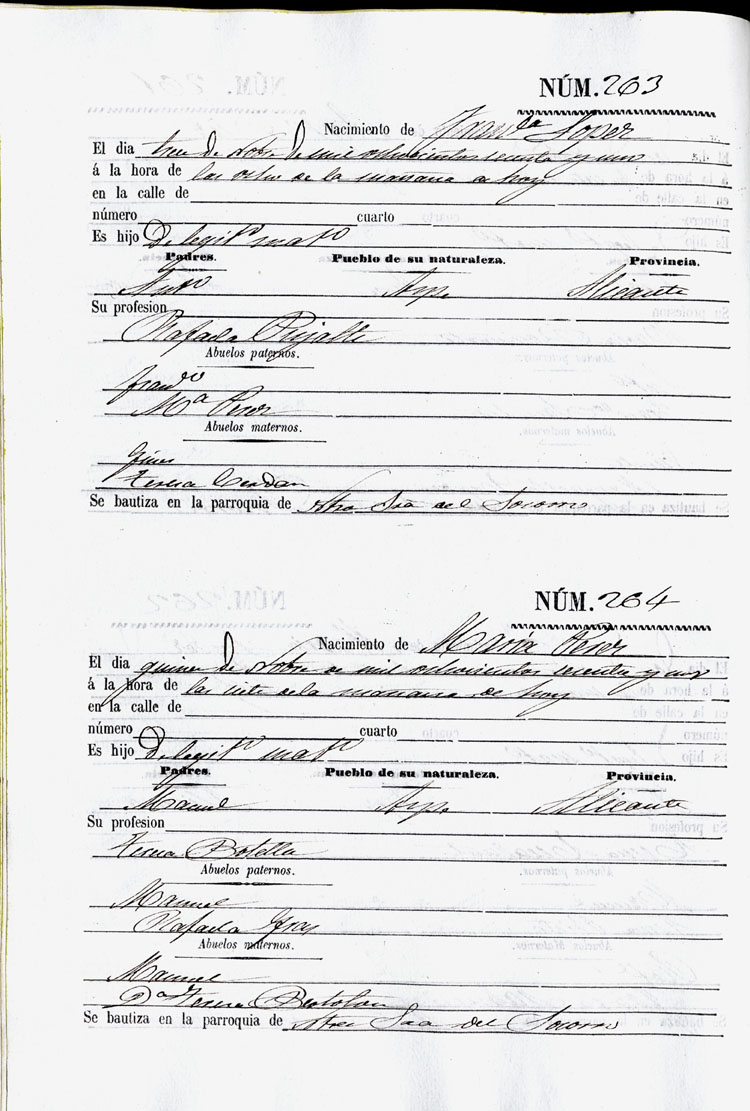 NÚM. 263
Nacimiento de Fran.da Lopez
El dia trece de Nobre de mil ochocientos secenta y uno
á la hora de las ocho de la mañana de hoy
en la calle de
número cuarto
Es hijo De legit.o mat.o
Padres. Pueblo de su naturaleza. Provincia.
Aspe Alicante
Su profesion
Rafaela Pujalte
Abuelos paternos.
Fran.co
M.a Perez
Abuelos maternos.
Gines
Teresa Cerdan
Se bautiza en la parroquia de Ntra Sra del Socorro
NÚM. 264
Nacimiento de Maria Perez
El dia quince de Nobre de mil ochocientos secenta y uno
á la hora de las siete de la mañana de hoy
en la calle de
número cuarto
Es hijo De legit.o mat.o
Padres. Pueblo de su naturaleza. Provincia.
Manuel Aspe Alicante
Su profesion
Teresa Botella
Abuelos paternos.
Manuel
Rafaela
Abuelos maternos.
Manuel
D.a Teresa
Se bautiza en la parroquia de Ntra Sra del Socorro